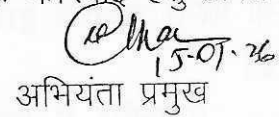 15-01-26
अभियंता प्रमुख